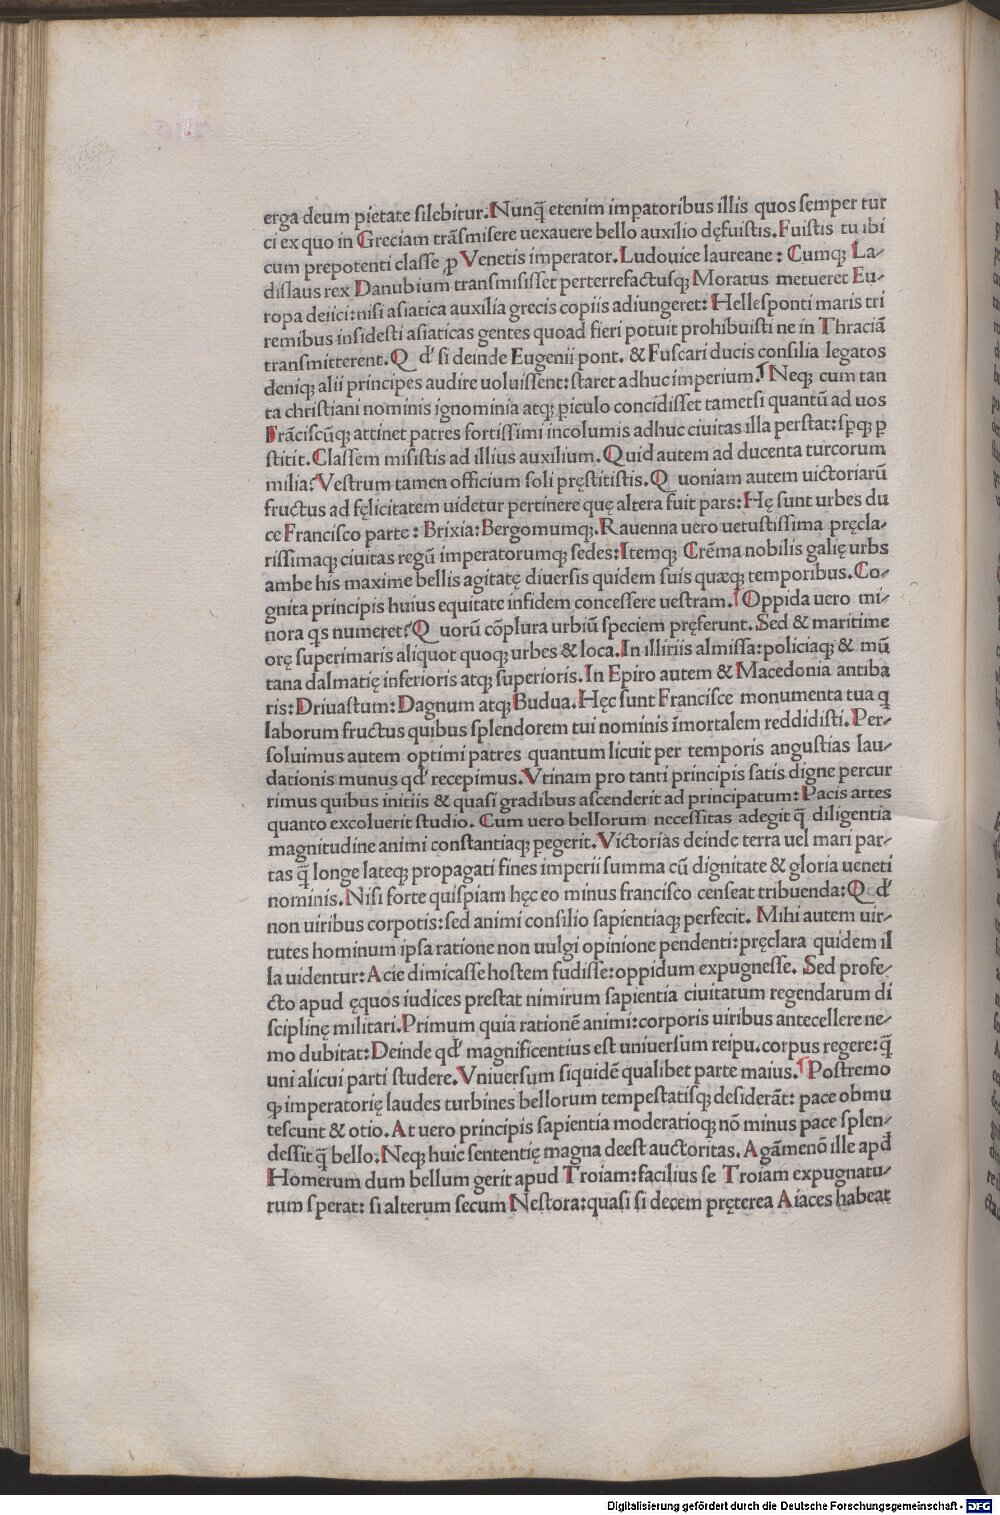 erga deum pietate ſilebitur. Nunq̃ etenim impatoribus illis quos ſemper tur
ci ex quo in Greciam trãſmiſere uexauere bello auxilio dęfuiſtis. Fuiſtis tu ibi
cum prepotenti claſſe ꝓ Venetis imperator. Ludouice laureane: Cumqꝫ La-
diſlaus rex Danubium transmiſiſſet perterrefactuſqꝫ Moratus metueret Eu-
ropa deiici: niſi aſiatica auxilia grecis copiis adiungeret: Helleſponti maris tri
remibus inſidesti aſiaticas gentes quoad fieri potuit prohibuiſti ne in Thraciã
tranſmitterent. Q d' ſi deinde Eugenii pont. & Fuſcari ducis conſilia legatos
deniqꝫ alii principes audire uoluiſſent: ſtaret adhuc imperium. ¶ Neqꝫ cum tan
ta chriſtiani nominis ignominia atqꝫ ꝑiculo concidiſſet tametſi quantũ ad uos
Frãciſcũqꝫ attinet patres fortiſſimi incolumis adhuc ciuitas illa perſtat: ſꝑqꝫ ꝑ
ſtitit. Claſſem miſiſtis ad illius auxilium. Quid autem ad ducenta turcorum
milia? Veſtrum tamen officium ſoli pręſtitiſtis. Q uoniam autem uictoriarũ
fructus ad fęlicitatem uidetur pertinere quę altera fuit pars: Hę ſunt urbes du
ce Franciſco parte: Brixia: Bergomumqꝫ. Rauenna uero uetuſtiſſima pręcla-
riſſimaqꝫ ciuitas regũ imperatorumqꝫ ſedes: Itemqꝫ Crẽma nobilis galię urbs
ambe his maxime bellis agitatę diuerſis quidem ſuis quæqꝫ temporibus. Co-
gnita principis huius equitate infidem conceſſere ueſtram. ¶ Oppida uero mi-
nora q̃s numeret? Q uorũ cõplura urbiũ ſpeciem pręferunt. Sed & maritime
orę ſuperimaris aliquot quoqꝫ urbes & loca. In illiriis almiſſa: policiaqꝫ & mũ
tana dalmatię inferioris atqꝫ ſuperioris. In Epiro autem & Macedonia antiba
ris: Driuaſtum: Dagnum atqꝫ Budua. Hęc ſunt Franciſce monumenta tua q̃
laborum fructus quibus ſplendorem tui nominis ĩmortalem reddidiſti. Per-
ſoluimus autem optimi patres quantum licuit per temporis anguſtias lau-
dationis munus qd' recepimus. Vtinam pro tanti principis ſatis digne percur
rimus quibus initiis & quaſi gradibus aſcenderit ad principatum: Pacis artes
quanto excoluerit ſtudio. Cum uero bellorum neceſſitas adegit q̃ diligentia
magnitudine animi conſtantiaqꝫ ꝑegerit. Victorias deinde terra uel mari par-
tas q̃ longe lateqꝫ propagati fines imperii ſumma cũ dignitate & gloria ueneti
nominis. Niſi forte quiſpiam hęc eo minus franciſco cenſeat tribuenda: Q d'
non uiribus corpotis: ſed animi conſilio ſapientiaqꝫ perfecit. Mihi autem uir-
tutes hominum ipſa ratione non uulgi opinione pendenti: pręclara quidem il
la uidentur: Acie dimicaſſe hoſtem fudiſſe: oppidum expugneſſe. Sed profe-
cto apud ęquos iudices preſtat nimirum ſapientia ciuitatum regendarum di
ſciplinę militari. Primum quia rationẽ animi: corporis uiribus antecellere ne-
mo dubitat: Deinde qd' magnificentius eſt uniuerſum reipu. corpus regere: q̃
uni alicui parti ſtudere. Vniuerſum ſiquidẽ qualibet parte maius. ¶ Poſtremo
qꝫ imperatorię laudes turbines bellorum tempeſtatiſqꝫ deſiderãt: pace obmu
teſcunt & otio. At uero principis ſapientia moderatioqꝫ nõ minus pace ſplen-
deſſit q̃ bello. Neqꝫ huic ſententię magna deeſt auctoritas. Agãmenõ ille apd'
Homerum dum bellum gerit apud Troiam: facilius ſe Troiam expugnatu-
rum ſperat: ſi alterum ſecum Neſtora: quaſi ſi decem pręterea Aiaces habeat
Digitalisierung gefördert durch die Deutsche Forschungsgemeinschaft - DFG